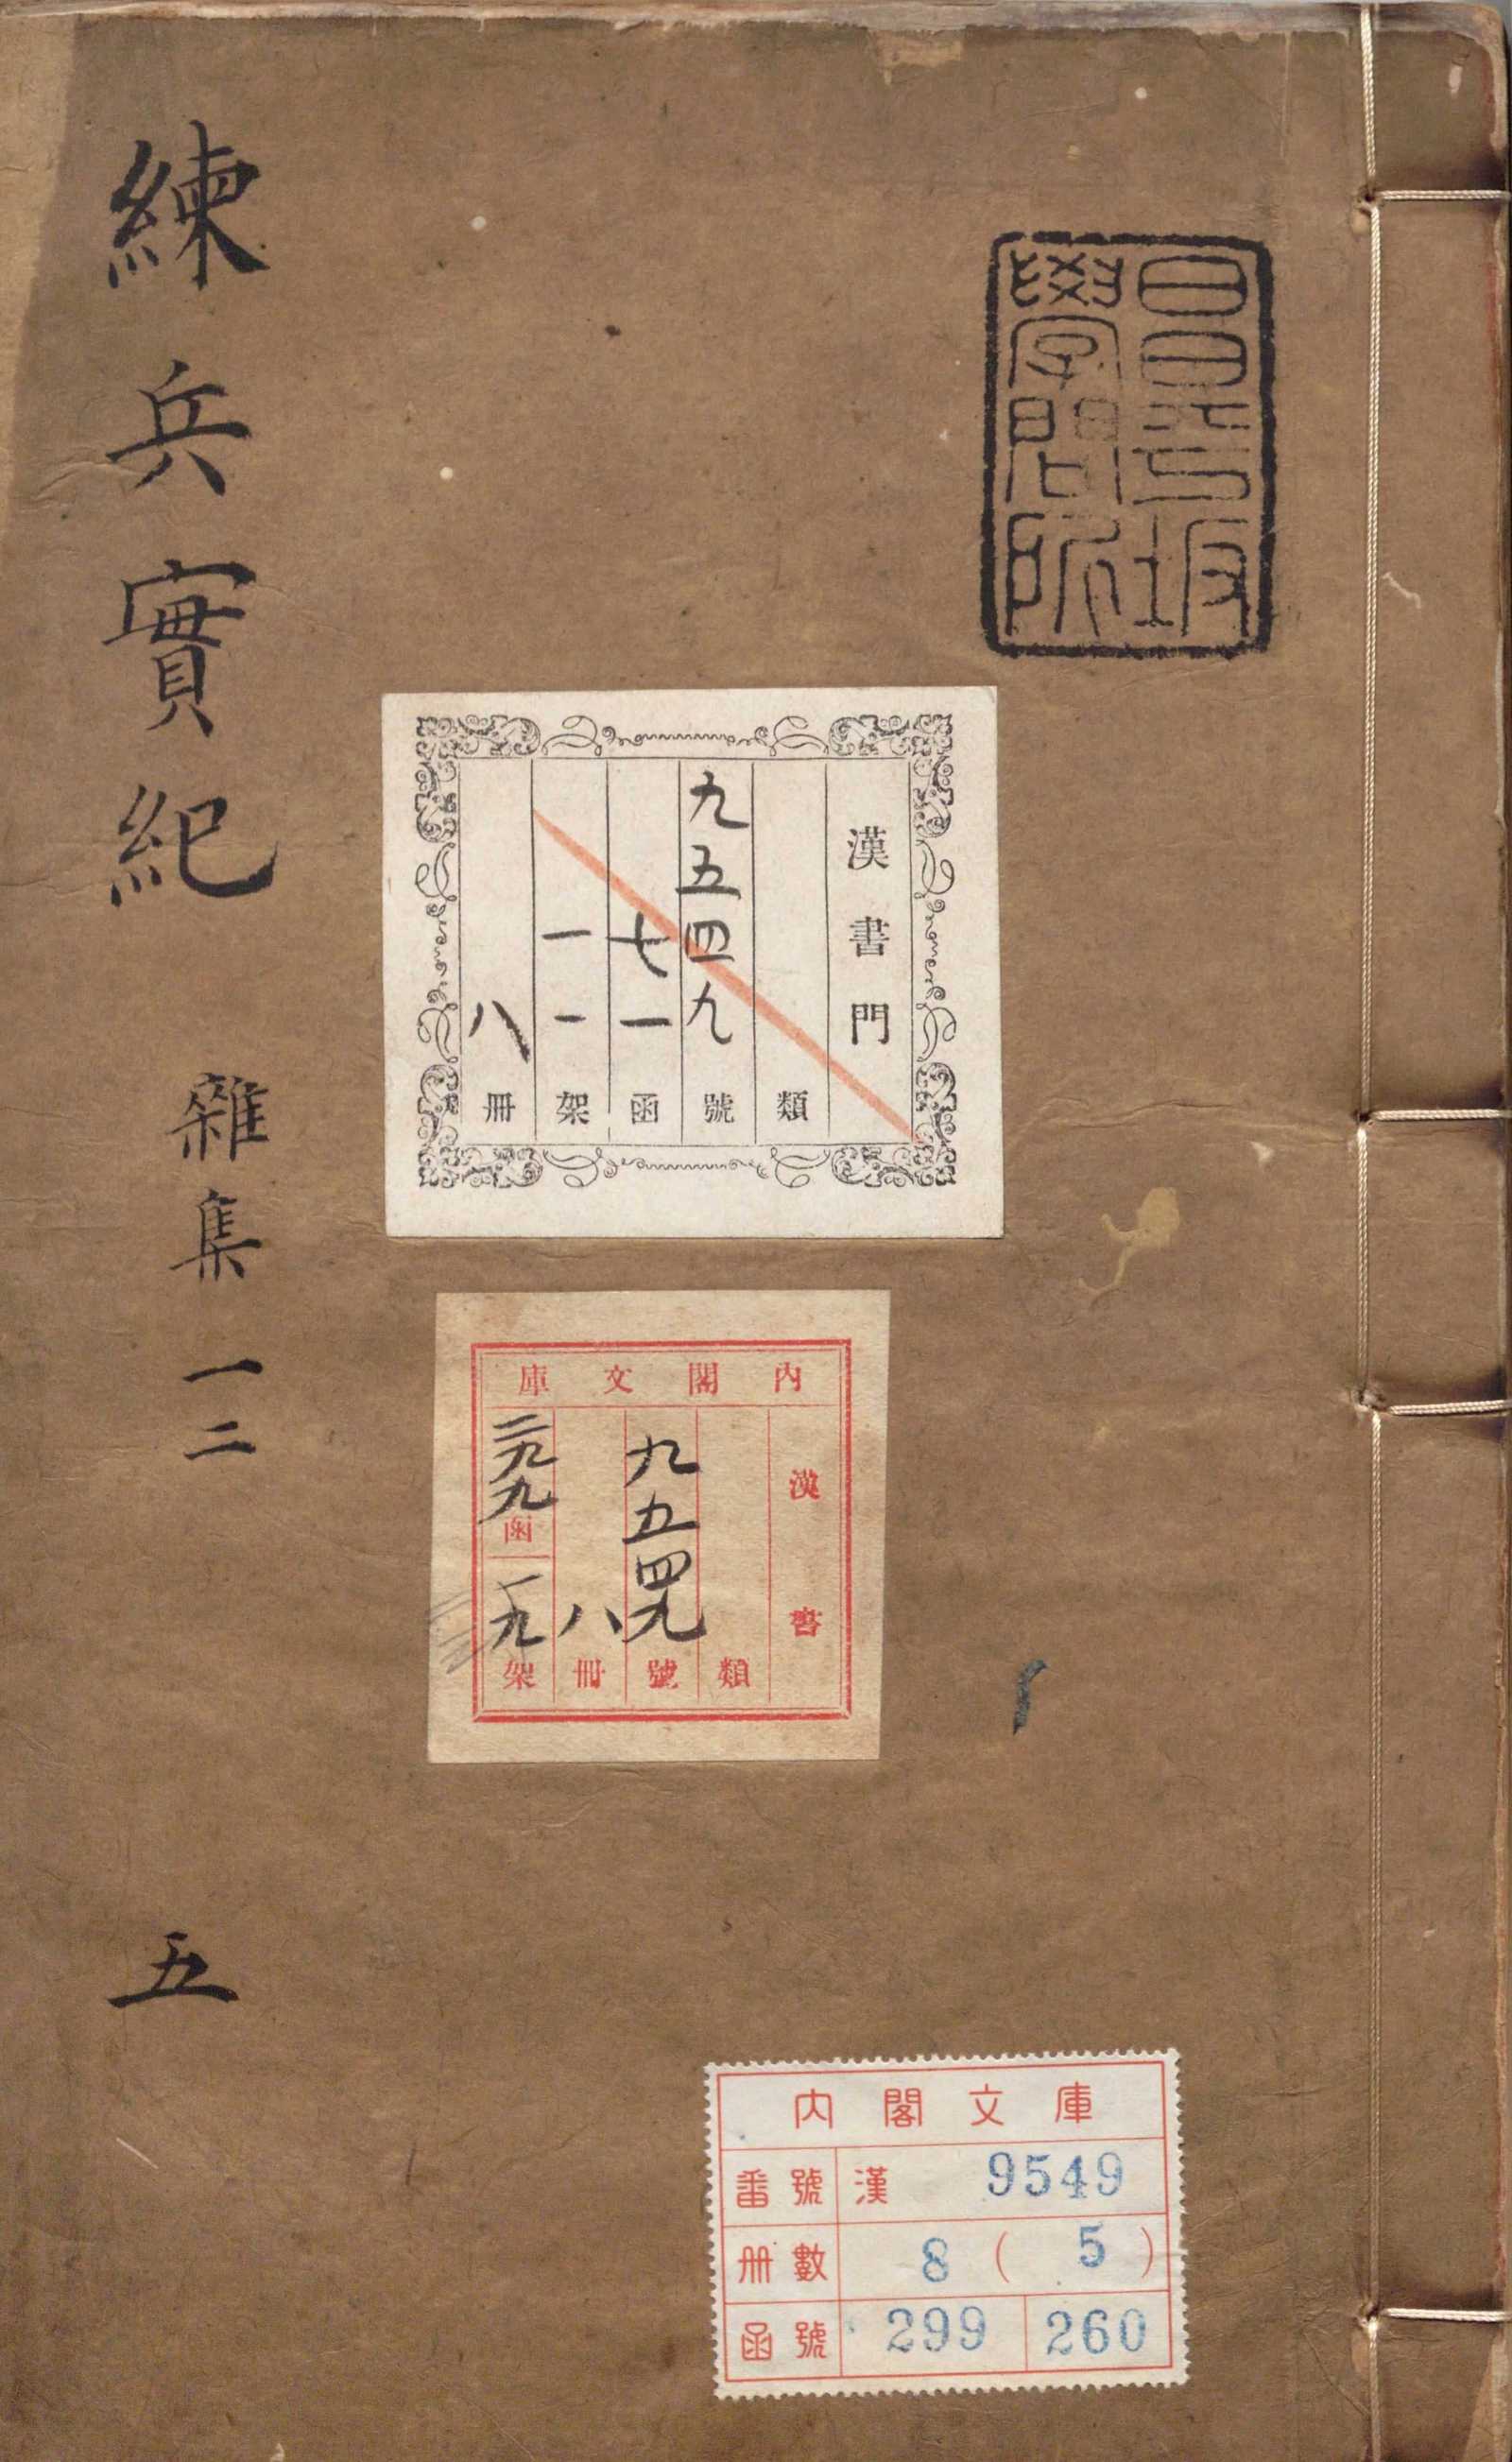 昌平坂
學問所
練兵實紀 雜集一二
五
漢書門
類
九五四九號
七一函
一一架
八冊
內閣文庫
漢書
類
九五四九號
八冊
二九九函
一九架
內閣文庫
番號 漢 9549
冊數 8 ( 5 )
函號 299 260